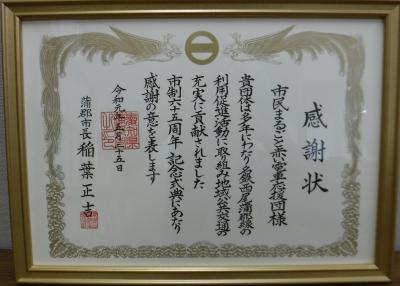 感謝状
市民まるごと赤い電車応援団様
貴団体は多年にわたり名鉄西尾蒲郡線の
利用促進活動に取り組み地域公共交通の
充実に貢献されました
市制六十五周年記念式典にあたり
感謝の意を表します
令和元年五月二十五日
蒲郡市長 稲葉正吉